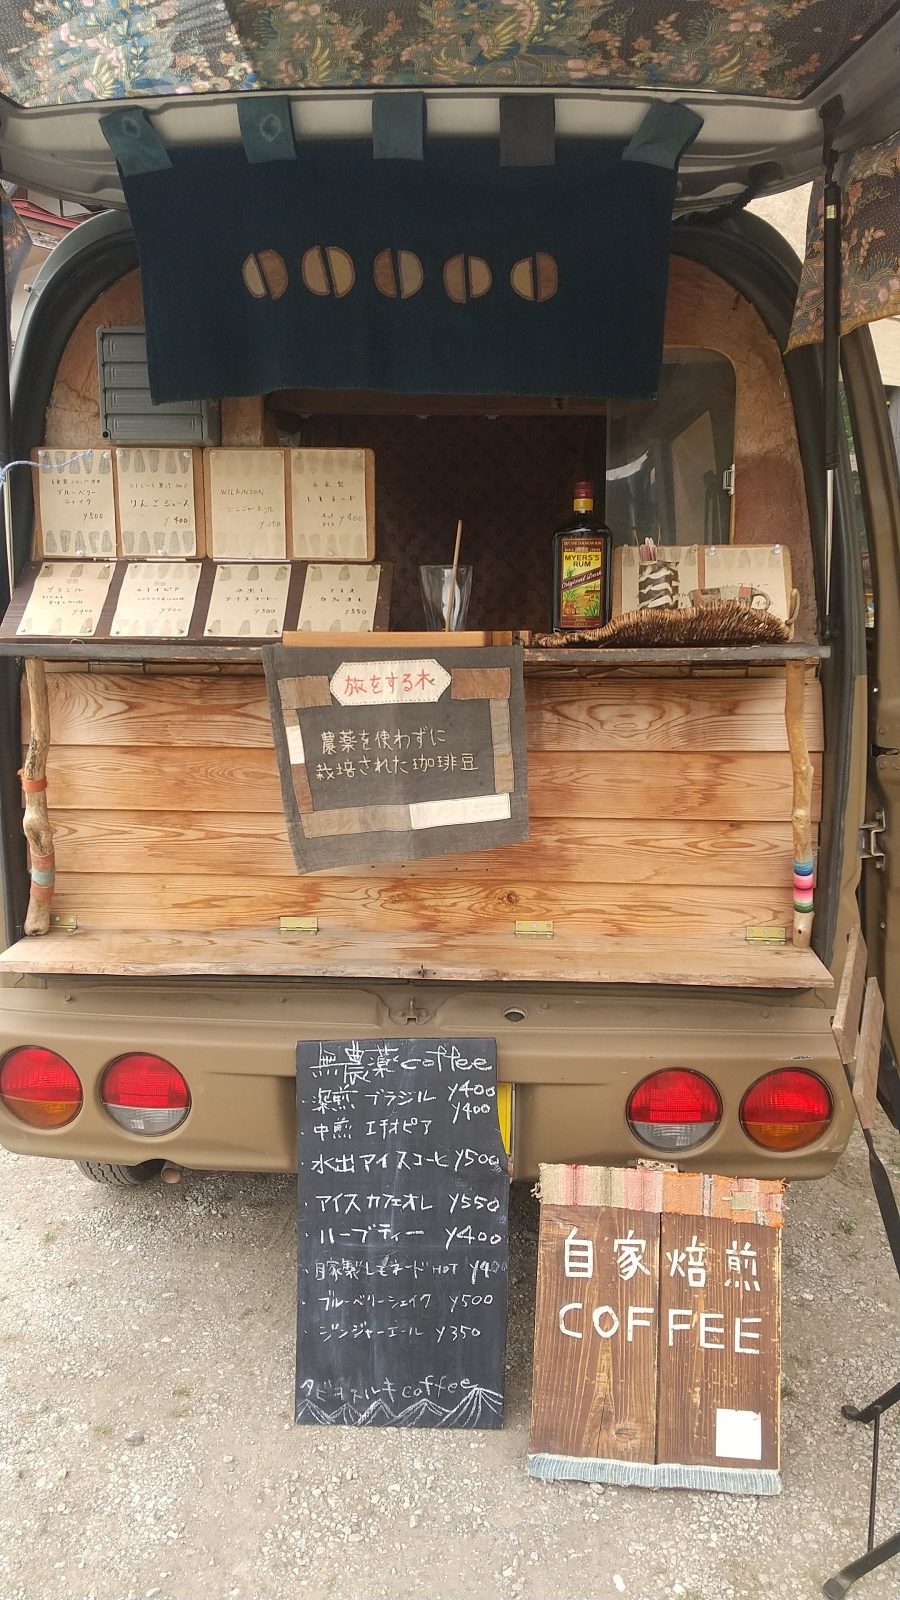 ブルーベリー
シェイク
¥500
ストレート果汁100%
りんごジュース
¥400
WILKINSON
ジンジャーエール
¥350
自家製
レモネード
ホット
アイス
¥400
深煎
ブラジル
¥400
エチオピア
¥400
水出し
アイスコーヒー
¥500
アイス
カフェオレ
¥550
MYERS'S
RUM
Original Dark
旅をする木
農薬を使わずに
栽培された珈琲豆
無農薬coffee
・深煎 ブラジル ¥400
・中煎 エチオピア ¥400
・水出アイスコーヒ ¥500
・アイスカフェオレ ¥550
・ハーブティー ¥400
・自家製レモネード HOT ¥400
・ブルーベリーシェイク ¥500
・ジンジャーエール ¥350
タビヲスルキcoffee
自家焙煎
COFFEE